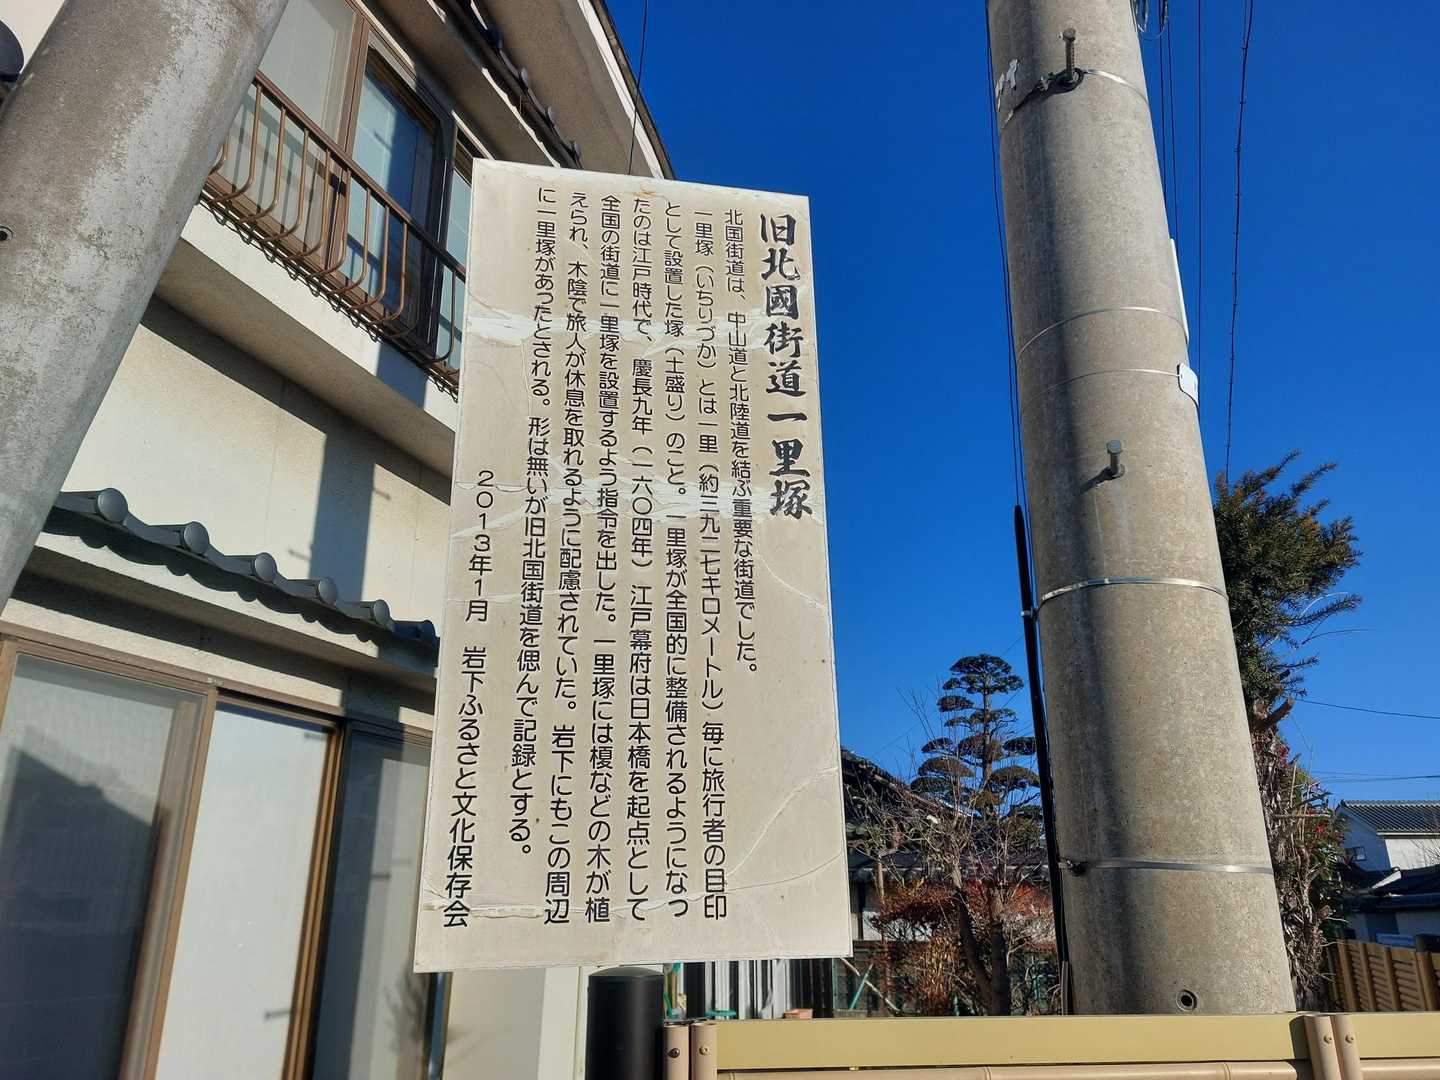 旧北國街道一里塚
北国街道は、中山道と北陸道を結ぶ重要な街道でした。
一里塚（いちりづか）とは一里（約三九二七キロメートル）毎に旅行者の目印
として設置した塚（土盛り）のこと。一里塚が全国的に整備されるようになっ
たのは江戸時代で、慶長九年（一六〇四年）江戸幕府は日本橋を起点として
全国の街道に一里塚を設置するよう指令を出した。一里塚には榎などの木が植
えられ、木陰で旅人が休息を取れるように配慮されていた。岩下にもこの周辺
に一里塚があったとされる。形は無いが旧北国街道を偲んで記録とする。
２０１３年１月　岩下ふるさと文化保存会